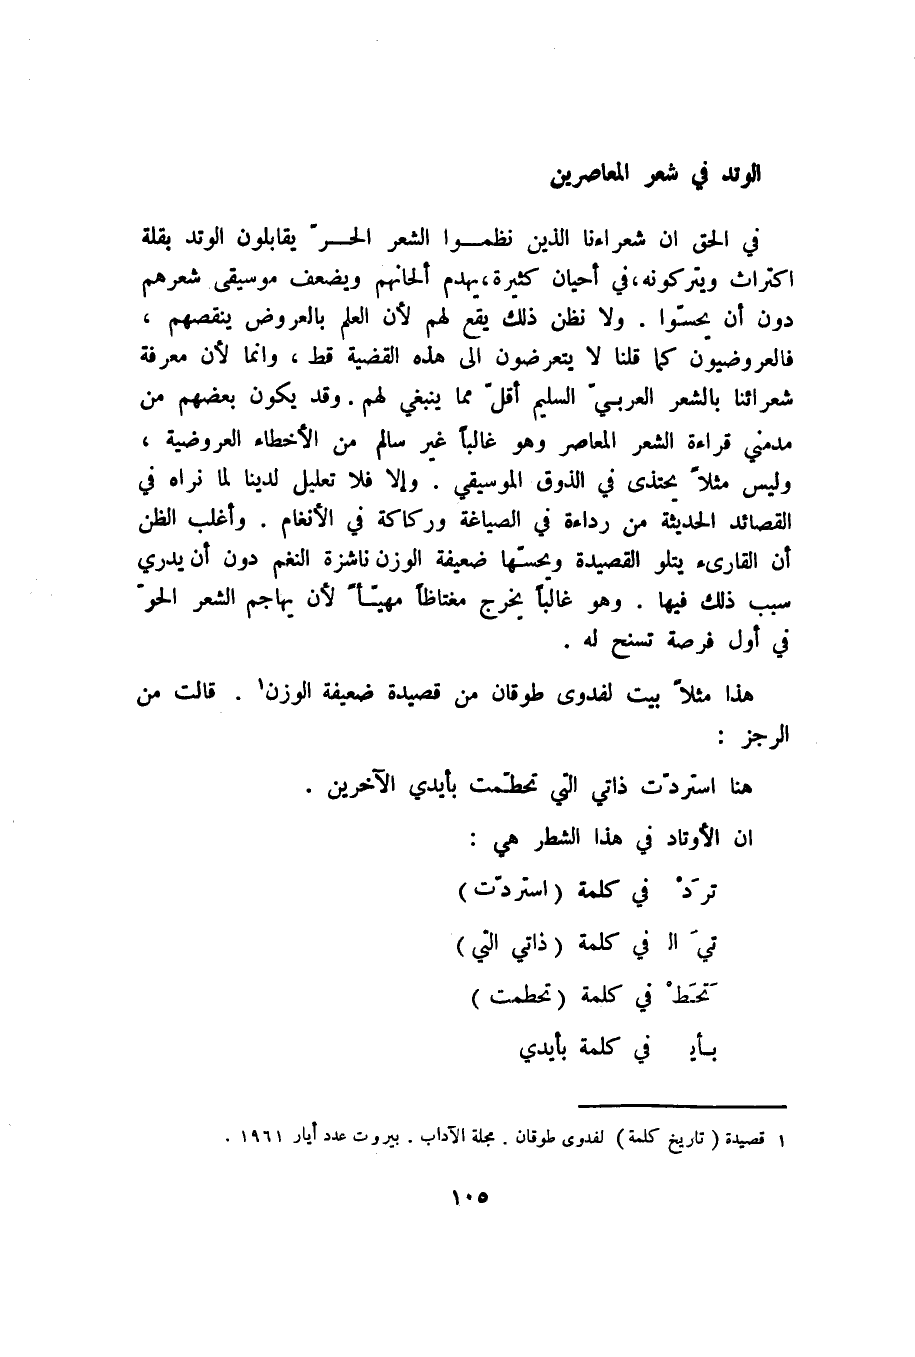 الوتد في شعر المعاصرين
في الحق ان شعراءنا الذين نظمـــوا الشعر الحـــرّ يقابلون الوتد بقلة
اكتراث ويتركونه، في أحيان كثيرة، يهدم ألحانهم ويضعف موسيقى شعرهم
دون أن يحسّوا . ولا نظن ذلك يقع لهم لأن العلم بالعروض ينقصهم ،
فالعروضيون كما قلنا لا يتعرضون الى هذه القضية قط ، وانما لأن معرفة
شعرائنا بالشعر العربيّ السليم أقلّ مما ينبغي لهم . وقد يكون بعضهم من
مدمني قراءة الشعر المعاصر وهو غالباً غير سالم من الأخطاء العروضية ،
وليس مثلاً يحتذى في الذوق الموسيقي . وإلا فلا تعليل لدينا لما نراه في
القصائد الحديثة من رداءة في الصياغة وركاكة في الأنغام . وأغلب الظن
أن القارىء يتلو القصيدة ويحسّها ضعيفة الوزن ناشزة النغم دون أن يدري
سبب ذلك فيها . وهو غالباً يخرج مغتاظاً مهيّأً لأن يهاجم الشعر الحرّ
في أول فرصة تسنح له .
هذا مثلاً بيت لفدوى طوقان من قصيدة ضعيفة الوزن١ . قالت من
الرجز :
هنا استردّت ذاتي التي تحطّمت بأيدي الآخرين .
ان الأوتاد في هذا الشطر هي :
ترَدْ في كلمة ( استردّت )
تيَ ال في كلمة ( ذاتي التي )
تَحَطْ في كلمة ( تحطمت )
بـأيـ في كلمة بأيدي
١ قصيدة ( تاريخ كلمة ) لفدوى طوقان . مجلة الآداب . بيروت عدد أيار ١٩٦١ .
١٠٥